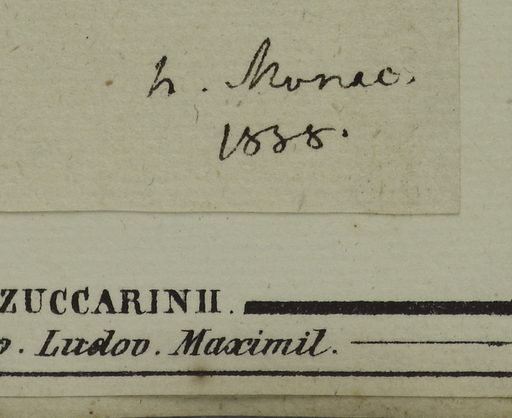 h. Monac.
1838.
ZUCCARINII.
o. Ludov. Maximil.